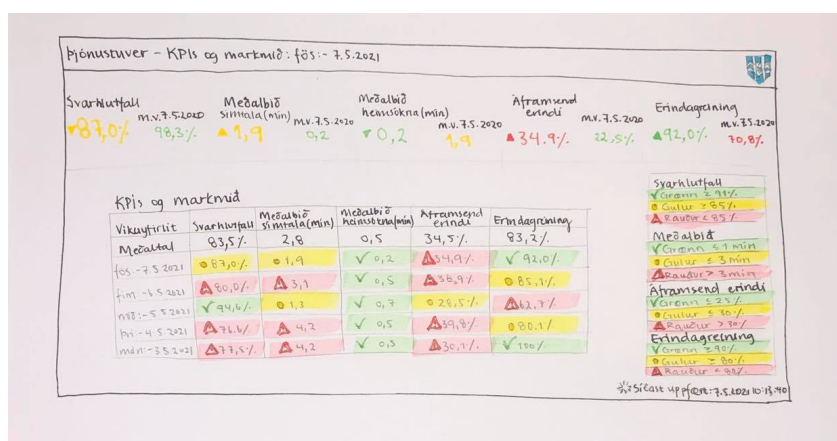 Þjónustuver - KPIs og markmið: fös:- 7.5.2021
Svarhlutfall
▼87,0%
m.v.7.5.2020
98,3%
Meðalbið
símtala(mín)
▲1,9
m.v.7.5.2020
0,2
Meðalbið
heimsókna(mín)
▼0,2
m.v.7.5.2020
1,9
Áframsend
erindi
▲34.9%
m.v.7.5.2020
22,5%
Erindagreining
▲92,0%
m.v.7.5.2020
70,8%
KPIs og markmið
Vikuyfirlit Svarhlutfall Meðalbið símtala(mín) Meðalbið heimsókna(mín) Áframsend erindi Erindagreining
Meðaltal 83,5% 2,8 0,5 34,5% 83,2%
fös:-7.5 2021 87,0% 1,9 ✓ 0,2 34,9% ✓ 92,0%
fim:-6.5 2021 80,0% 3,1 ✓ 0,5 36,9% 85,1%
mið:-5.5 2021 ✓ 94,6% 1,3 ✓ 0,7 28,5% 62,7%
þri:-4.5.2021 76.6% 4,2 ✓ 0,5 39,8% 80.1%
mán:-3.5 2021 77,5% 4,2 ✓ 0,3 30,1% ✓ 100%
Svarhlutfall
✓ Grænn ≥ 94%
Gulur ≥ 85%
Rauður < 85%
Meðalbið
✓ Grænn ≤ 1 mín
Gulur ≤ 3 mín
Rauður > 3 mín
Áframsend erindi
✓ Grænn ≤ 25%
Gulur ≤ 30%
Rauður > 30%
Erindagreining
✓ Grænn ≥ 90%
Gulur ≥ 80%
Rauður < 80%
Síðast uppfært: 7.5.2021 10:13:40